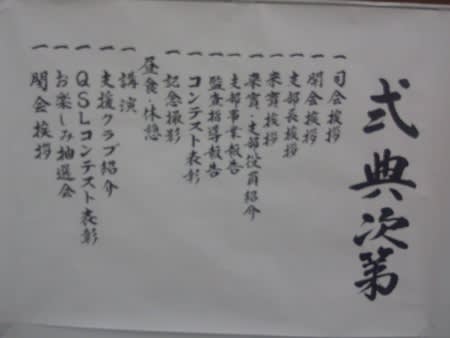 式典次第
一 司会挨拶
一 開会挨拶
一 支部長挨拶
一 来賓挨拶
一 来賓・支部役員紹介
一 支部事業報告
一 監査指導報告
一 コンテスト表彰
一 記念撮影
昼食・休憩
一 講演
一 支援クラブ紹介
一 QSLコンテスト表彰
一 お楽しみ抽選会
一 閉会挨拶